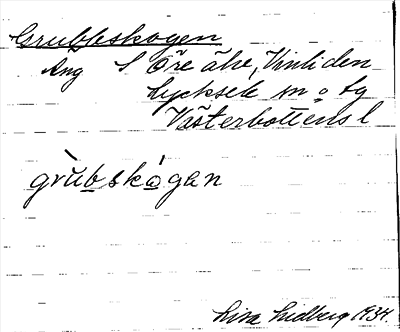 Grubbskogen
Äng S Öre älv, Vinliden
Lycksele sn o tg
Västerbottens l
grùbskågan
Lisa Lidberg 1934.